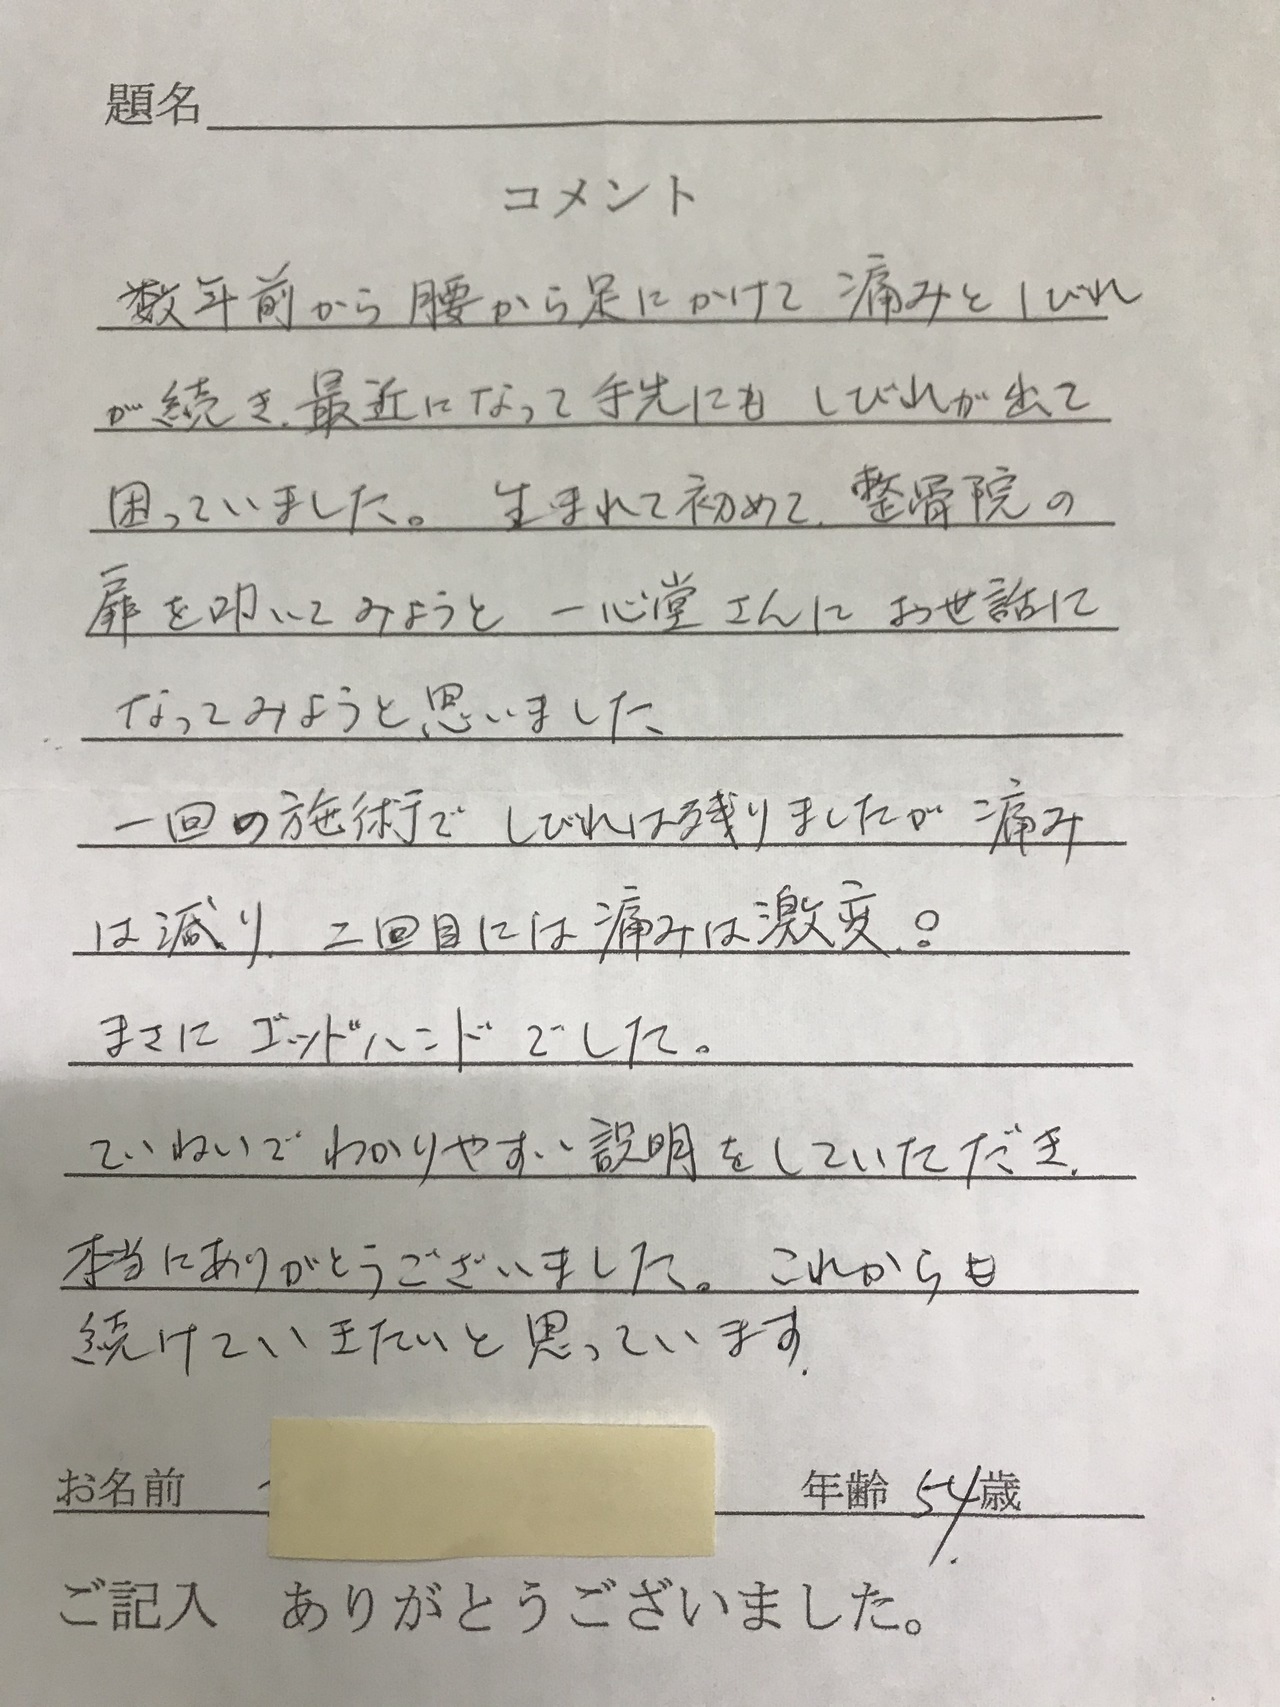 題名
コメント
数年前から腰から足にかけて痛みとしびれ
が続き、最近になって手先にもしびれが出て
困っていました。 生まれて初めて、整骨院の
扉を叩いてみようと一心堂さんにお世話に
なってみようと思いました
一回の施術でしびれは残りましたが痛み
は減り、二回目には痛みは激変!
まさにゴッドハンドでした。
ていねいでわかりやすい説明をしていただき、
本当にありがとうございました。 これからも
続けていきたいと思っています。
お名前 年齢 54歳
ご記入 ありがとうございました。